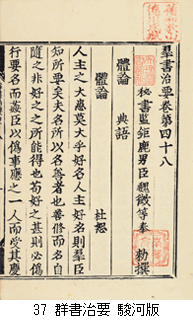 羣書治要卷第四十八
秘書監鉅鹿男臣魏徵等奉 勅撰
體論 典語
體論 杜恕
人主之大患莫大乎好名人主好名則羣臣
知所要矣夫名所以名善者也善修而名自
隨之非好之之所能得也苟好之甚則必僞
行要名而姦臣以僞事應之一人而受其慶
37 群書治要 駿河版